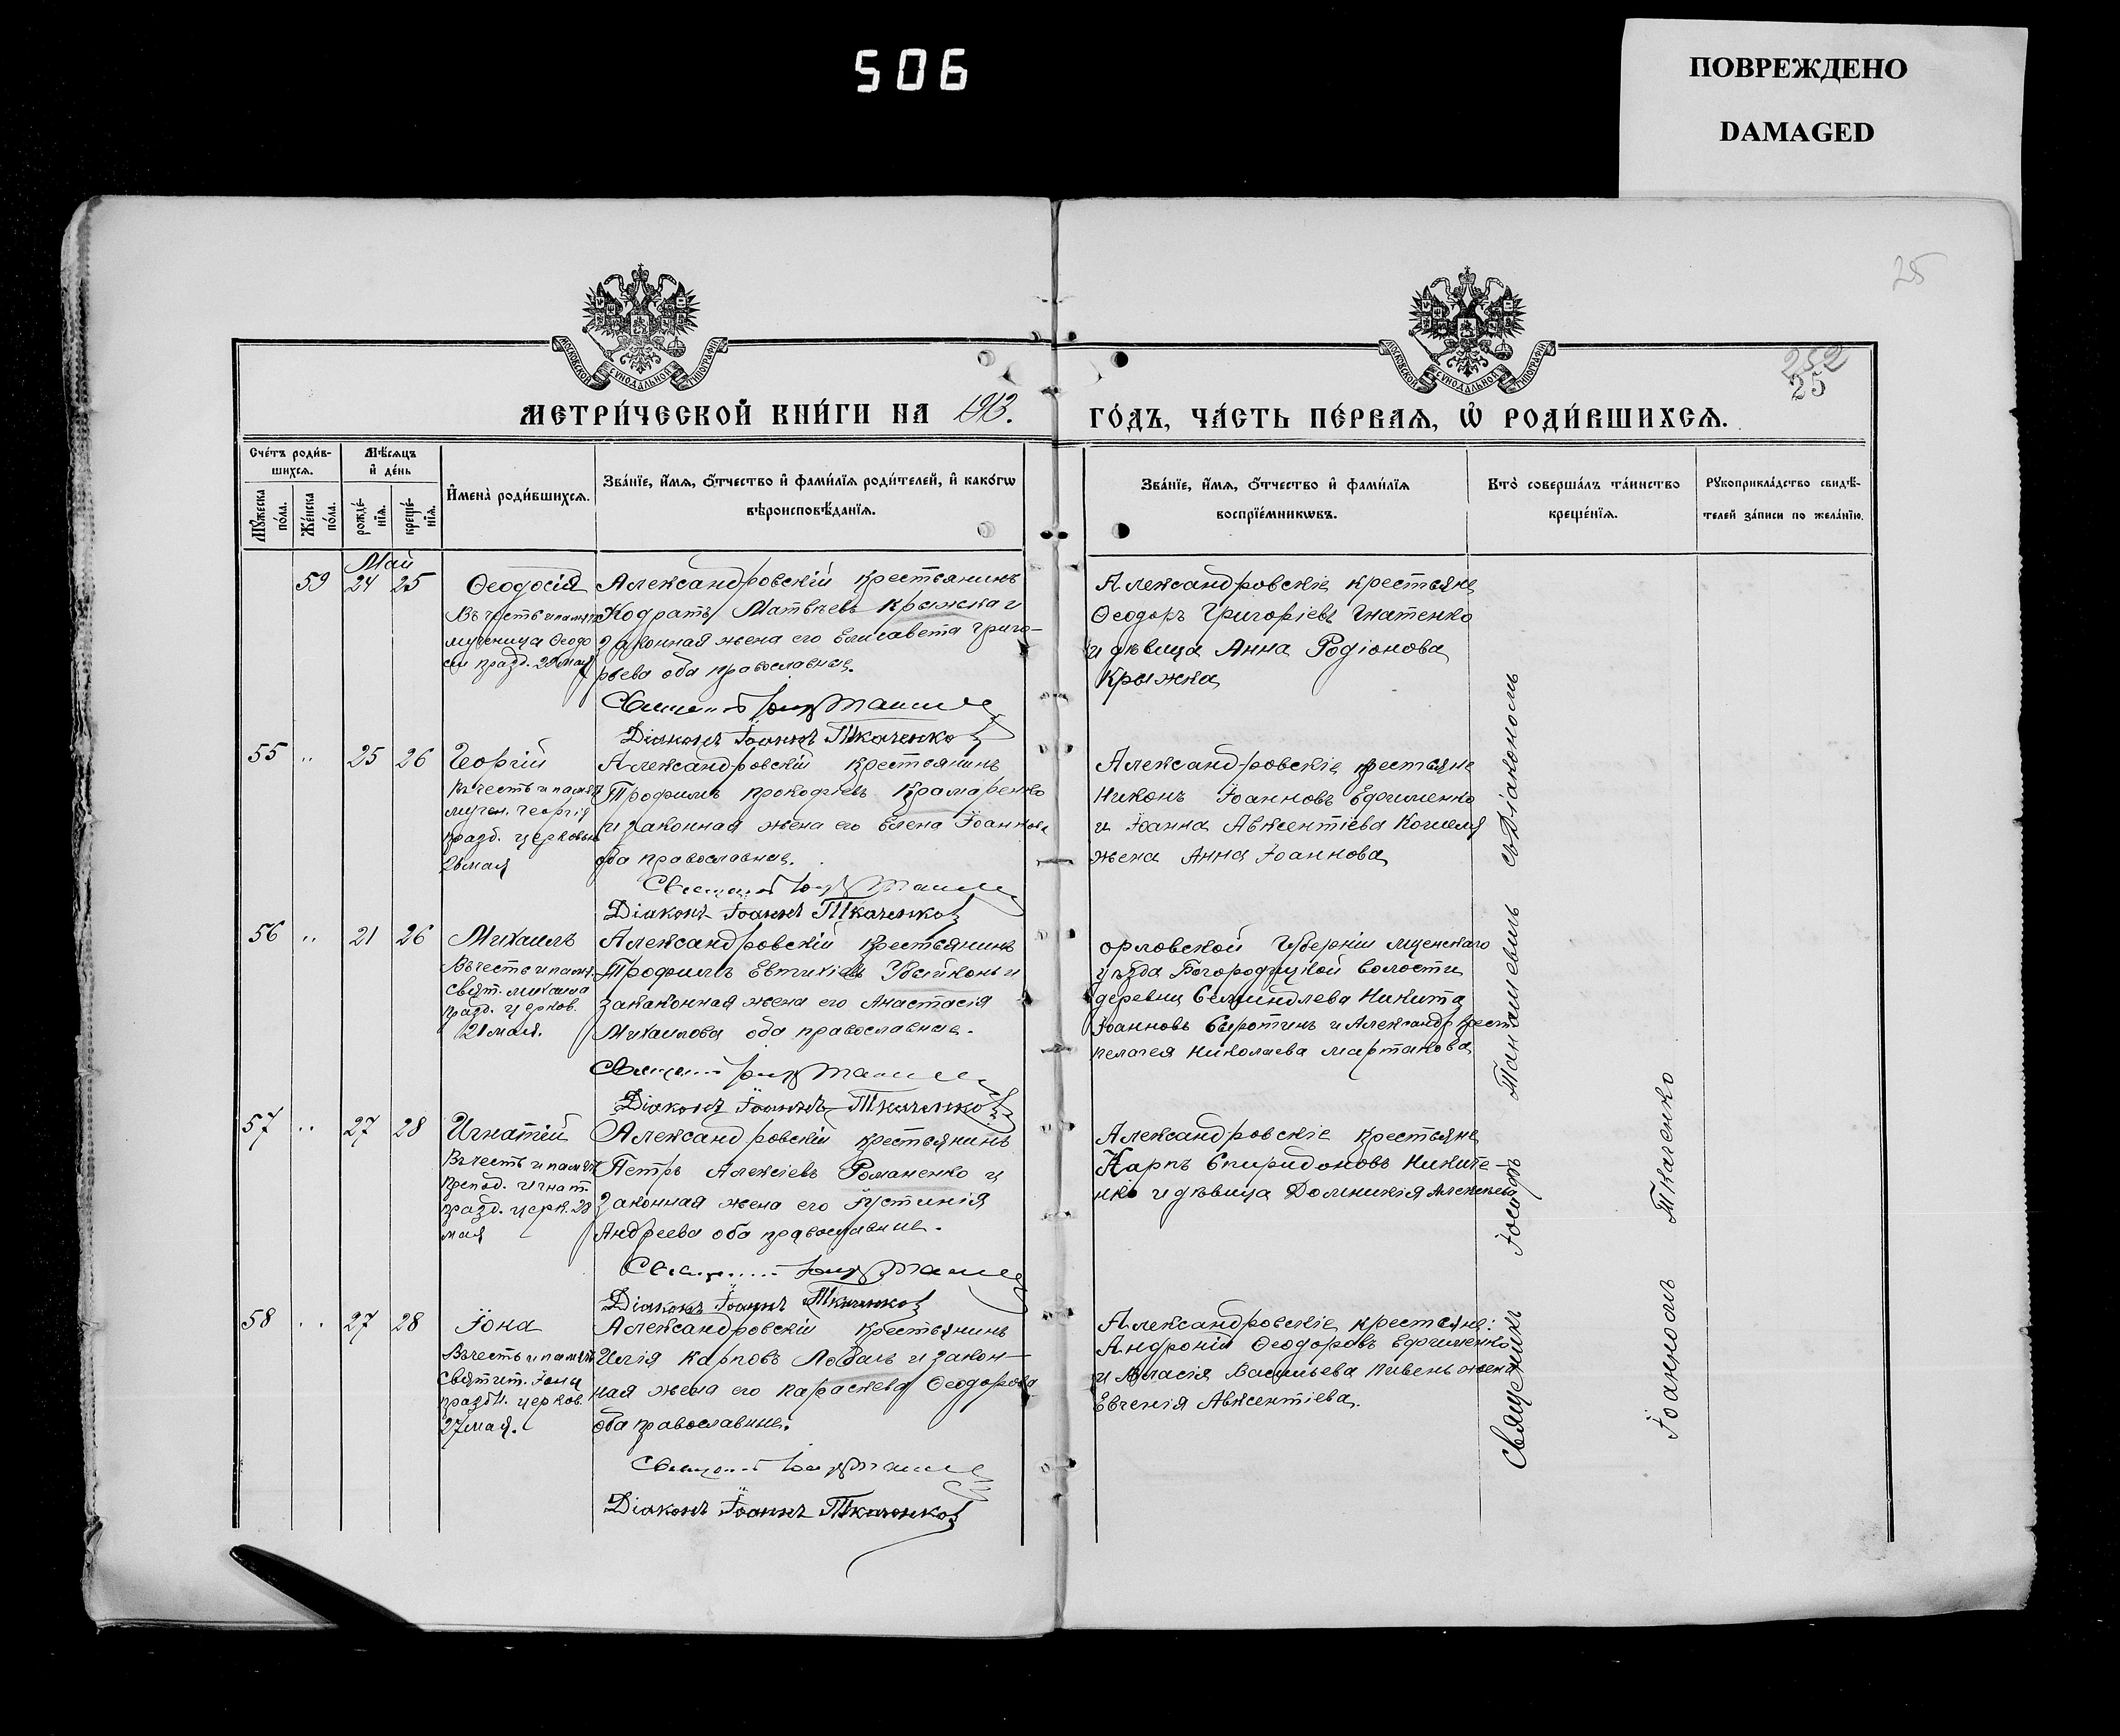 506
ПОВРЕЖДЕНО
DAMAGED
25
252
25
МОСКОВСКОЙ СѴНОДАЛЬНОЙ ТИПОГРАФІИ
МОСКОВСКОЙ СѴНОДАЛЬНОЙ ТИПОГРАФІИ
МЕТРИ́ЧЕСКОЙ КНИ́ГИ НА 1913.
ГО́ДЪ, ЧА́СТЬ ПЕ́РВАѦ, Ѡ҆ РОДИ́ВШИХСѦ.
Сче́тъ роди́в-
шихсѧ.
Мꙋ́жеска
по́ла.
Же́нска
по́ла.
Мѣ́сѧцъ
и҆ де́нь
рожде́-
нїѧ.
креще́-
нїѧ.
И҆мена̀ роди́вшихсѧ.
Зва́нїе, и҆́мѧ, ѻ҆́тчество и҆ фами́лїѧ роди́телей, и҆ како́гѡ
вѣроисповѣ́данїѧ.
Зва́нїе, и҆́мѧ, ѻ҆́тчество и҆ фами́лїѧ
воспрїе́мникѡвъ.
Кто̀ соверша́лъ та́инство
креще́нїѧ.
Рꙋкоприкла́дство свидѣ́-
телей за́писи по жела́нїю.
Май
59 24 25 Ѳеодосія
Въ честь и память
мученица Ѳеодо
сіи празд. 29 мая
Александровскій крестьянинъ
Кодратъ Матвѣевъ Крыжка и
законная жена его Елисавета Григо-
рьева оба православные.
Діаконъ Іоаннъ Ткаченко
Александровскіе крестьяне
Ѳеодоръ Григоріевъ Гнатенко
и дѣвица Анна Родіонова
Крыжка
55 " 25 26 Георгій
Въ честь и память
мучен. Георгія
празд. церковью
26 мая
Александровскій крестьянинъ
Трофимъ Прокофіевъ Крамаренко
и законная жена его Елена Іоаннова
оба православные.
Діаконъ Іоаннъ Ткаченко
Александровскіе крестьяне
Никонъ Іоанновъ Ефименко
и Іоанна Авксентіева
жена Анна Іоаннова
56 " 21 26 Михаилъ
Въ честь и памят.
свят. Михаила
празд. церков.
21 мая.
Александровскій крестьянинъ
Трофимъ Евтихіевъ и
закаконная жена его Анастасія
Михаилова оба православные.
Діаконъ Іоаннъ Ткаченко
Орловской Губерніи Мценскаго
уѣзда Богородицкой волости
деревни Никита
Іоанновъ Сиротинъ и Александр. крест
Пелагея Николаева Мартынова
57 " 27 28 Игнатій
Въ честь и память
препод. Игнат.
празд. церк. 28
мая
Александровскій крестьянинъ
Петръ Алексіевъ Романенко и
законная жена его Іустинія
Андреева оба православные.
Діаконъ Іоаннъ Ткаченко
Александровскіе крестьяне
Карпъ Спиридоновъ Никите-
нко и дѣвица Домникія Алексѣева
58 " 27 28 Іона
Въ честь и память
святит. Іона
праздн. церков.
27 мая.
Александровскій крестьянинъ
Илія Карповъ и закон-
ная жена его Параскева Ѳеодорова
оба православные.
Діаконъ Іоаннъ Ткаченко
Александровскіе крестьяне:
Андроній Ѳеодоровъ Ефименко
и Власія Васильева Пивень жена
Евгенія Авксентіева.
Священникъ Іосифъ съ Діакономъ
Іоанномъ Ткаченко